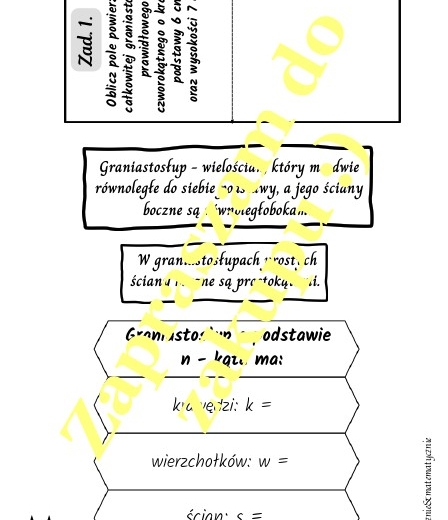 Zad. 1.
Oblicz pole powierz
całkowitej graniasto
prawidłowego
czworokątnego o kra
podstawy 6 cm
oraz wysokości 7
Graniastosłup – wielościan, który m dwie
równoległe do siebie podstawy, a jego ściany
boczne są równoległobokami.
W graniastosłupach prostych
ściany boczne są prostokątami.
Graniastosłup o podstawie
n – kąta ma:
krawędzi: k =
wierzchołków: w =
ścian: s =
Zapraszam do
zakupu :)
znie&matematycznie